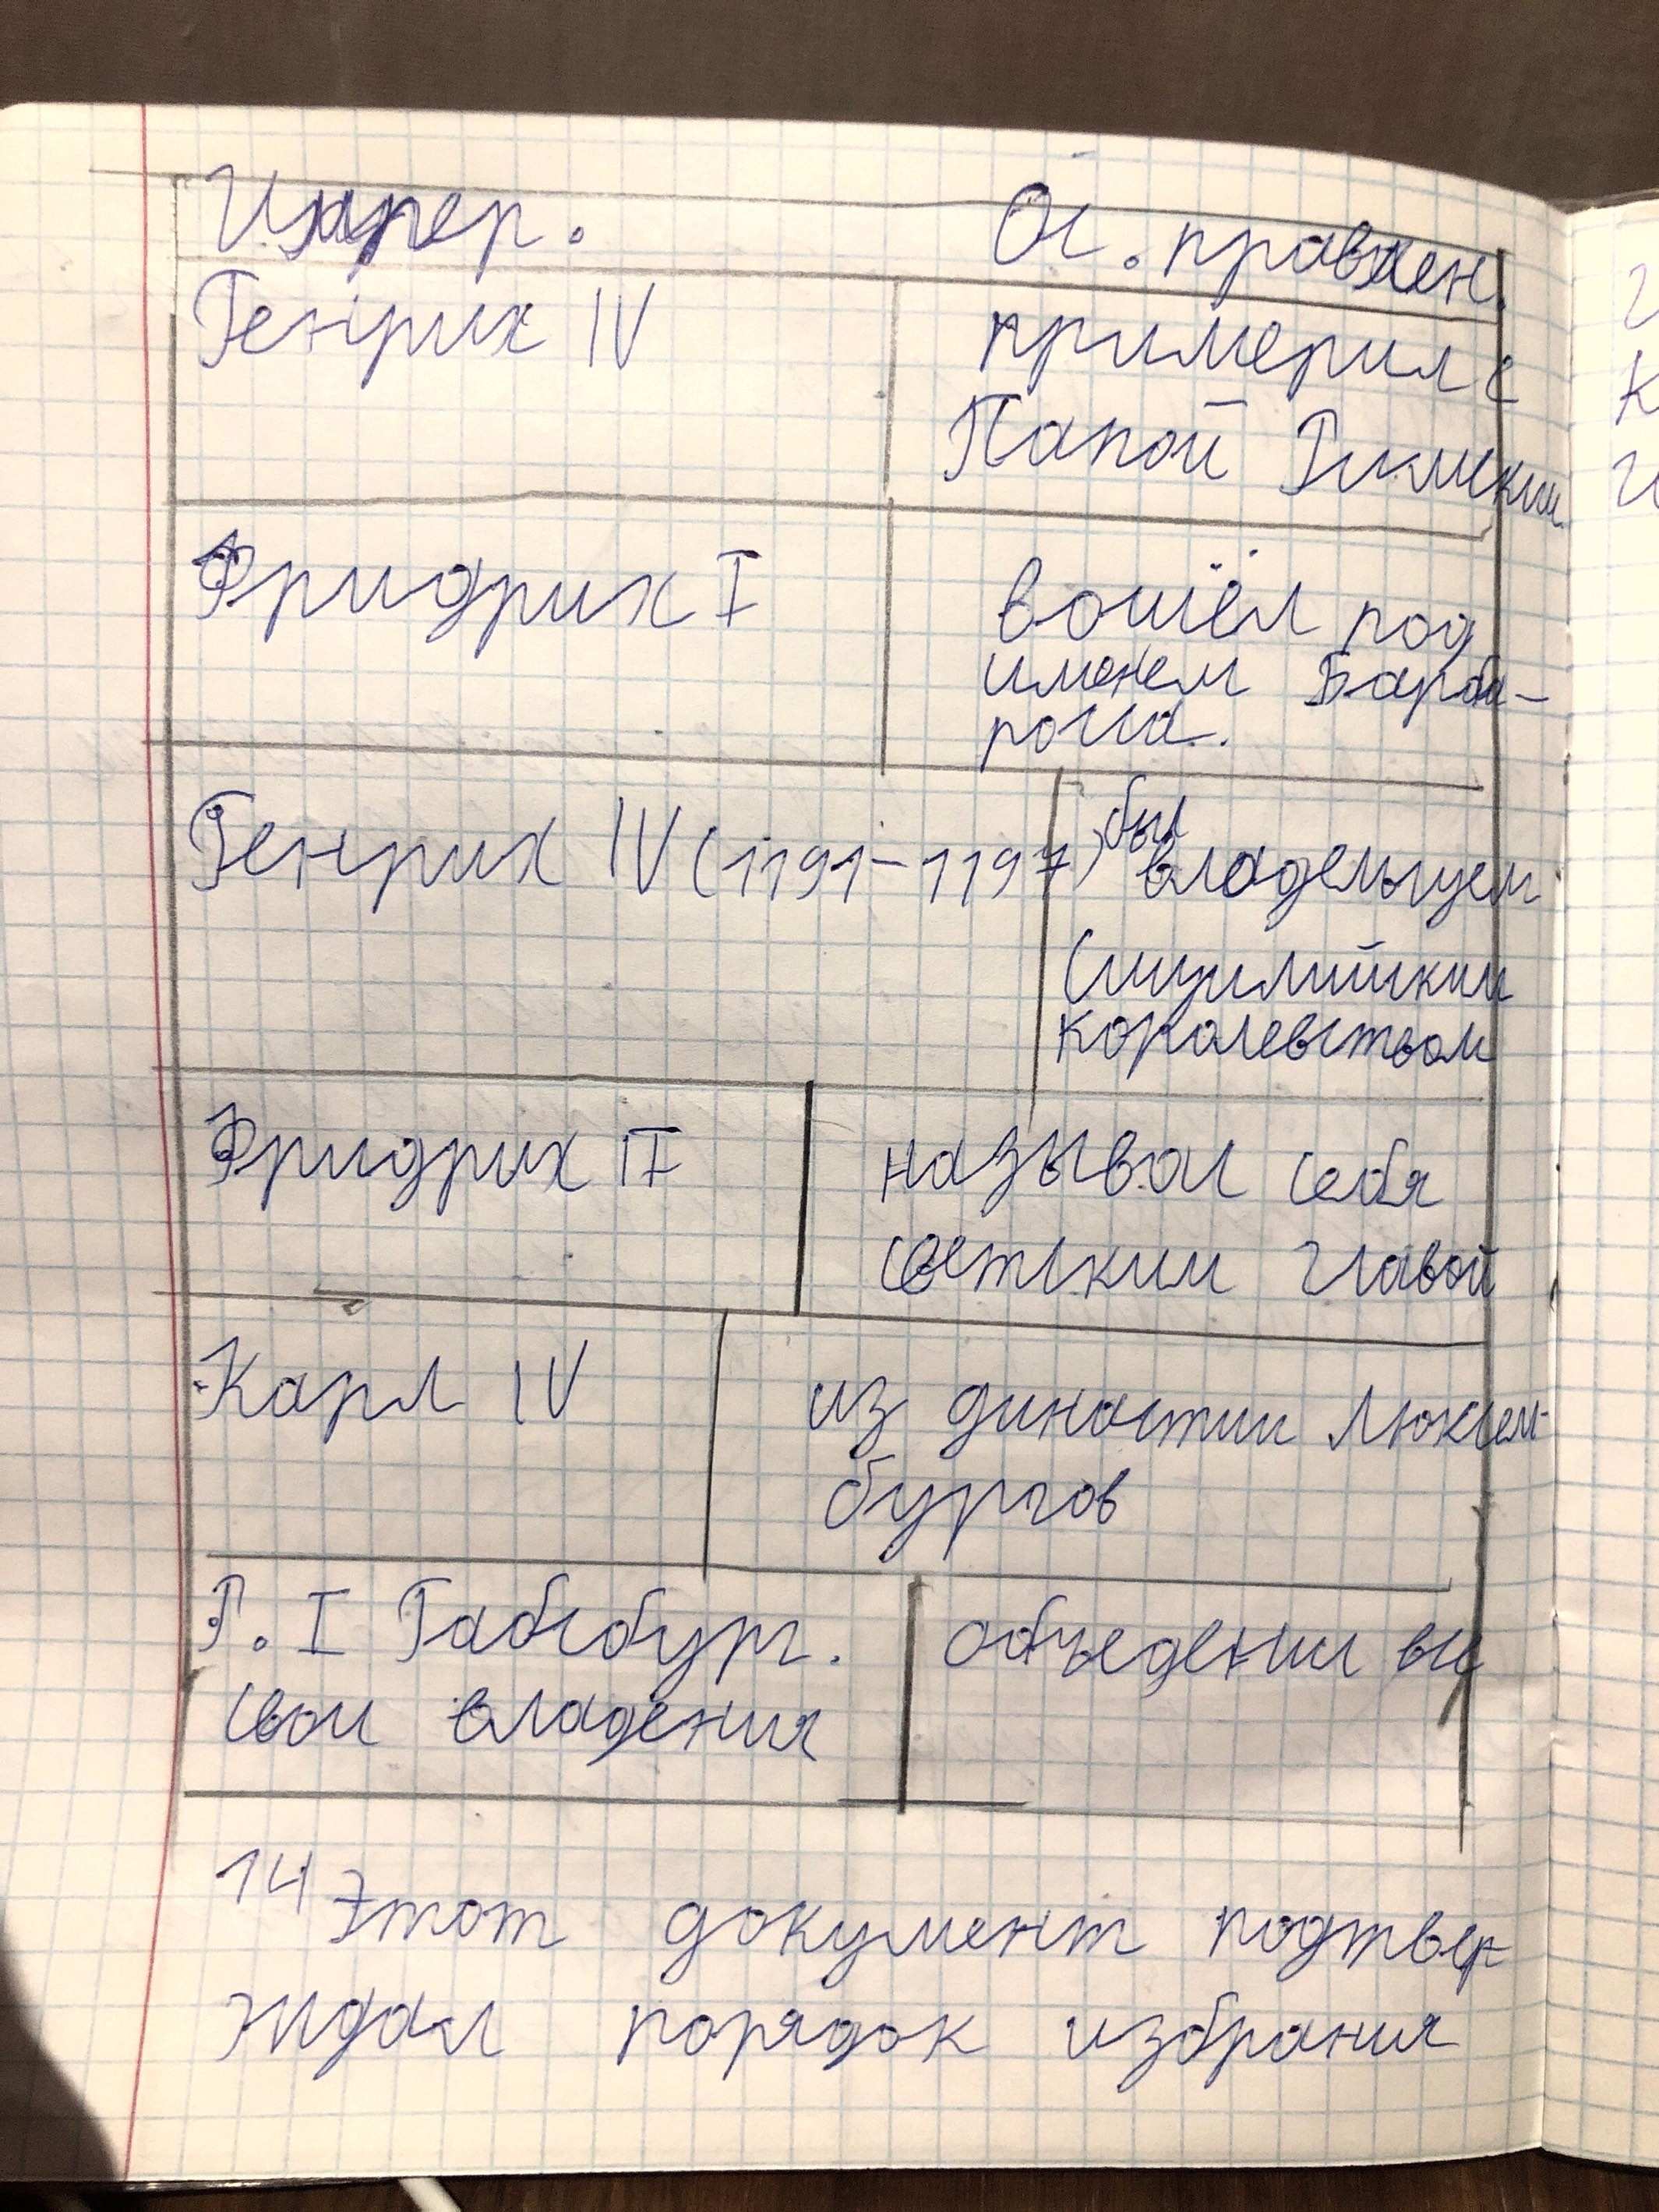 Импер. Ос. правлен.
Генрих IV примерил с
Папой Римским
Фридрих I вошёл под
именем Барба-
росса.
Генрих IV (1191-1197) был владельцем
Сицилийским
королевством
Фридрих II называл себя
светским главой
Карл IV из династии Люксем-
бургов
Р. I Габсбург. объеденил все
свои владения
14 Этот документ подтвер-
ждал порядок избрания